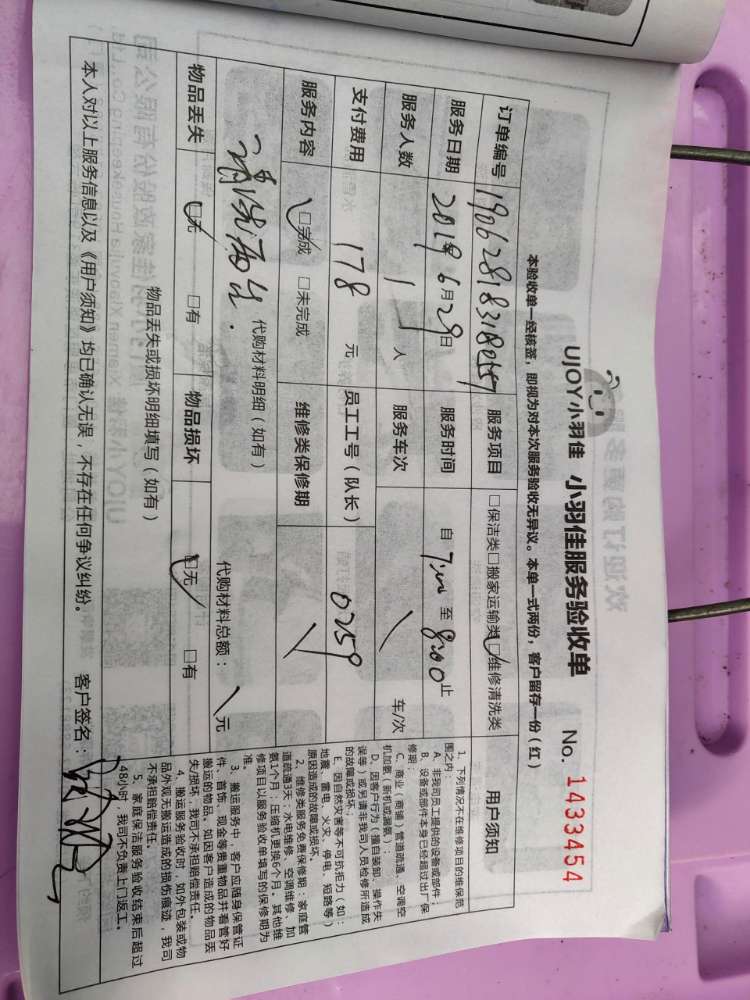 UJOY小羽佳 小羽佳服务验收单 No. 1433454
本验收单一经核签，即视为对本次服务验收无异议。本单一式两份，客户留存一份（红）
订单编号 服务项目 □保洁类□搬家运输类□维修清洗类 用户须知
服务日期 2019年6月29日 服务时间 自 7:00 至 8:00 止
服务人数 1 人 服务车次 \ 车/次
支付费用 178 元 员工工号（队长） 0259
服务内容 □完成 □未完成 维修类保修期
代购材料明细（如有） 代购材料总额： \ 元
清洗两台.
物品丢失 □无 □有 物品损坏 □无 □有
物品丢失或损坏明细填写（如有）
本人对以上服务信息以及《用户须知》均已确认无误，不存在任何争议纠纷。 客户签名：
1. 下列情况不在维修项目的维保范
围之内：
A、非我司员工提供的设备或部件；
B、设备或部件本身已经超过出厂保
修期；
C、商业（商铺）管道疏通、空调空
机加氨，新机或漏氨；
D、因客户行为（擅自装卸、操作失
误等）或另请非我司人员检修所造成
的故障或损坏；
E、因自然灾害等不可抗拒力（如：
地震、雷电、火灾、停电、短路等）
原因造成的故障或损坏。
2、维修类服务免费保修期：家庭管
道疏通3天，水电维修、空调维修、加
氨1个月，压缩机更换6个月。其他维
修项目以服务验收单填写的保修期为
准。
3、搬运服务中，客户应随身保管证
件、首饰、现金等贵重物品并看管好
搬运的物品。如因客户造成的物品丢
失/损坏，我司不承担赔偿责任。
4、搬运服务验收时，如外包装或物
品外观无搬运造成的损伤痕迹，我司
不承担赔偿责任。
5、家庭保洁服务验收结束后超过
48小时，我司不负责上门返工。